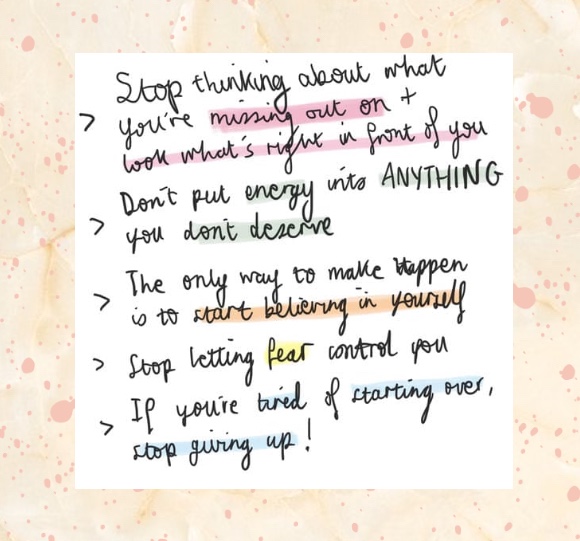 Stop thinking about what
> you're missing out on +
look what's right in front of you
Don't put energy into ANYTHING
> you don't deserve
The only way to make happen
> is to start believing in yourself
> Stop letting fear control you
If you're tired of starting over,
> stop giving up!